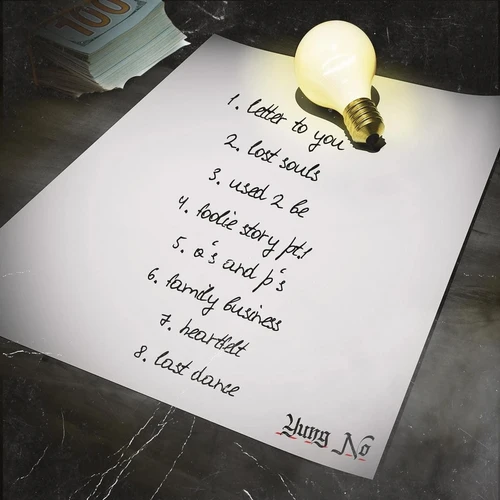 100
1. letter to you
2. lost souls
3. used 2 be
4. foodie story pt.1
5. q's and p's
6. family business
7. heartfelt
8. last dance
Yung No